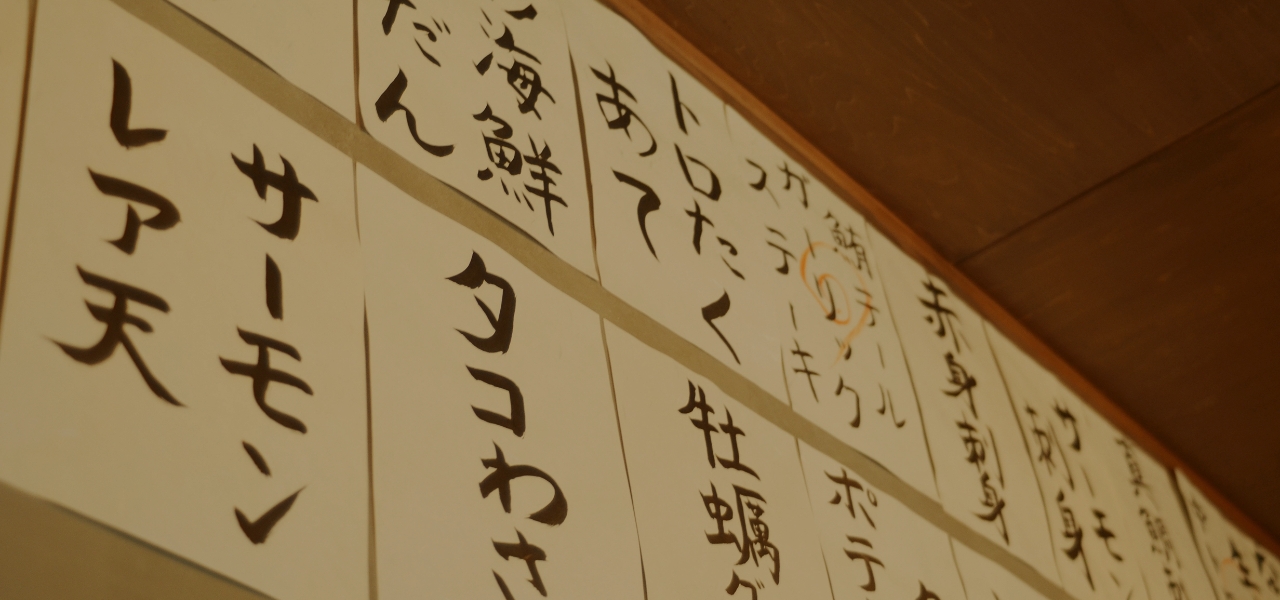 サーモン
刺身
赤身刺身
鮪テール
ガーリック
ステーキ
トロたく
あて
海鮮
だん
ポテ
牡蠣グ
タコわさ
サーモン
レア天